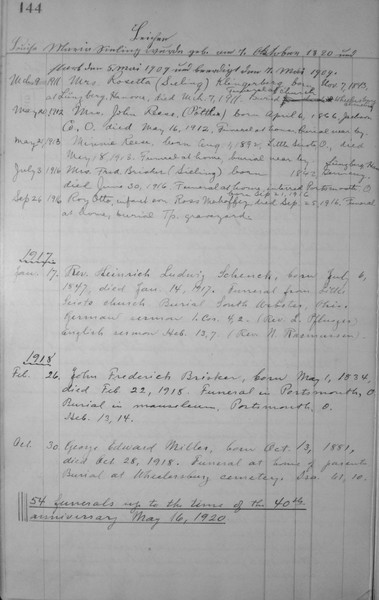 144
Leichen
Luise Marie Sieling wurde geb. am 7. Oktober 1820 und
starb den 5. Mai 1909 und beerdigt den 7. Mai 1909.
Mrs. Rosetta (Sieling) Klingerberg born Nov. 7, 
at Lüneberg, Hanov., died Mch. 7, 1911. buried Wheelersburg
Funeral at church
Mrs. John Rase, born April 6, 1866, Jackson
Co., O. died May 16, 1912. Funeral at home. Burial near by.
Minnie Reen, born Aug. 9, 1892, Little Scioto O., died
May 18, 1913. Funeral at home, burial near by
July 3 1916 Mrs. Fred. Brisker (Sieling) born 1842, Germany,
died June 30, 1916. Funeral at home, interred Portsmouth O.
Sep 26 1916 Roy Otto, infant son Ross born Sep. 21, 1916 died Sep. 25, 1916. Funeral
at home, buried Tp. graveyard.
1917.
Jan. 17. Rev. Heinrich Ludwig Schenck, born Jul. 6,
1847, died Jan. 14, 1917. Funeral from Little
Scioto church. Burial South Webster, Ohio.
German sermon 1. Cor. 4, 2. (Rev. L. Pfluger)
English sermon Heb. 13, 7 (Rev. N. Rasmussen).
1918
Feb. 26. John Frederich Brisker, born May 1, 1834,
died Feb. 22, 1918. Funeral in Portsmouth, O.
Burial in mausoleum, Portsmouth, O.
Heb. 13, 14.
Oct. 30. George Edward Miller, born Oct. 13, 1881,
died Oct. 28, 1918. Funeral at home of parents
Burial at Wheelersburg cemetery. Isa. 41, 10.
54 funerals up to the time of the 40th
anniversary May 16, 1920.